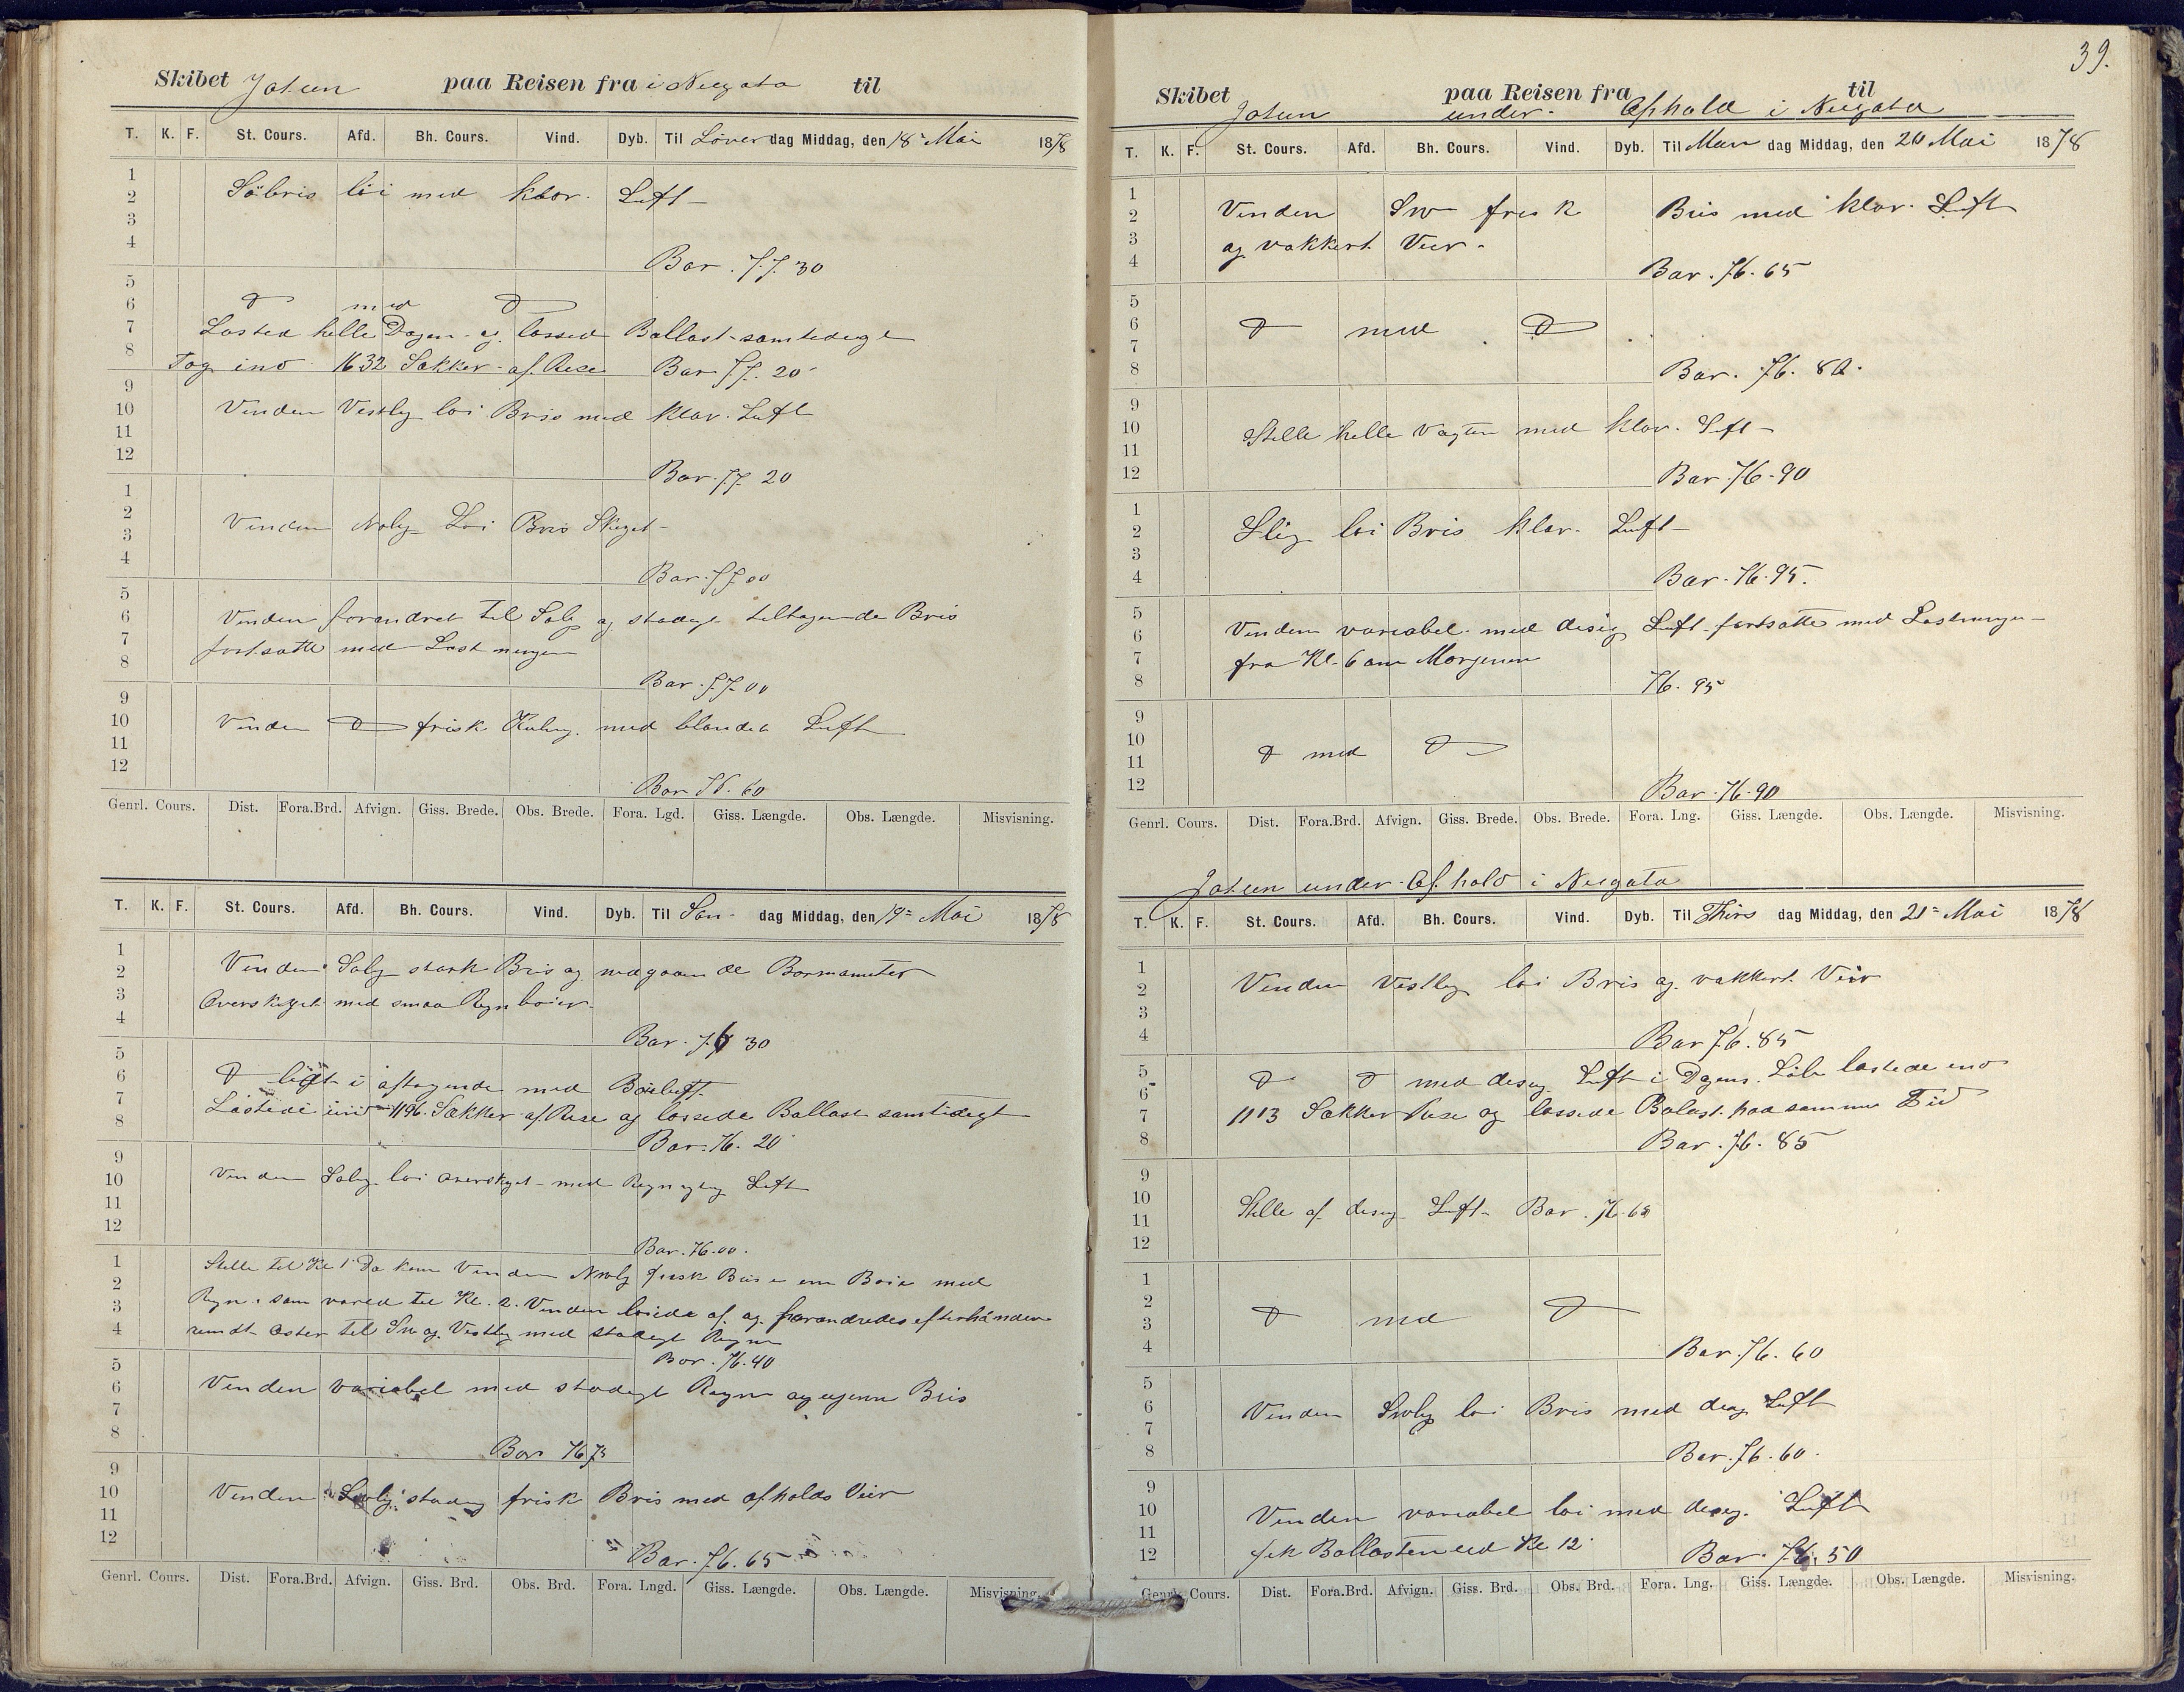 Skibet Jotun paa Reisen fra i Neegata til
T. K. F. St. Cours. Afd. Bh. Cours. Vind. Dyb. Til Löverdag Middag, den 18= Mai 1878
1
2 Söbris löi med klar. Luft
3
4 Bar. 77 30
5
6 D med D
7 Lasted helle Dagen og lossed Ballast samtedegt
8 Tog ind 1632 Sækker af Rise Bar 77. 20
9
10 Vinden Vestlig löi Bris med klar. Luft
11
12 Bar. 77 20
1
2 Vinden Nolig Löi Bris Skyet
3
4 Bar. 77 00
5
6 Vinden forandret til Solig og stadigt tiltagende Bris
7 fortsatte med Lastningen
8 Bar. 77 00
9
10 Vinden D frisk Kuling. med blandet Luft
11
12 Bar 76. 60
Genrl. Cours. Dist. Fora.Brd. Afvign. Giss. Brede. Obs. Brede. Fora. Lgd. Giss. Længde. Obs. Længde. Misvisning.
T. K. F. St. Cours. Afd. Bh. Cours. Vind. Dyb. Til Sön- dag Middag, den 19= Mai 1878
1
2 Vinden Solig stærk Bris og nedgaaende Barmameter
3 Overskyet med smaa Regnboier
4 Bar. 76 30
5
6 D ligt i aftagende med Böieluft.
7 Lastede ind 1196. Sækker af Rise og lossede Ballast samtidegt
8 Bar. 76. 20
9
10 Vinden Solig. löi overskyet med Luft
11
12 Bar. 76.00.
1 Stelle til Kl 1 Da kom Vinden Nwlig frisk Bris i en Boie med
2 Regn. som vared til Kl. 2. Vinden löiede af og forandredes efterhånden
3 rundt Oster til Sw og Vestlig med stadigt Regn
4 Bar. 76.40
5
6 Vinden variabel med stadigt Regn og ujenn Bris
7
8 Bar 76 75
9
10 Vinden Swlig stadig frisk Bris med opholds Veir
11
12 Bar. 76. 65
Genrl. Cours. Dist. Fora.Brd. Afvign. Giss. Brd. Obs. Brd. Fora. Lngd. Giss. Længde. Obs. Længde. Misvisning.
39.
Skibet Jotun paa Reisen fra til
under Ophold i Neegata
T. K. F. St. Cours. Afd. Bh. Cours. Vind. Dyb. Til Man dag Middag, den 20 Mai 1878
1
2 Vinden Sw frisk Bris med klar. Luft
3 og vakkert Veir
4 Bar. 76. 65
5
6 D med D
7
8 Bar. 76. 80.
9
10 Stelle helle Vagten med klar. Luft
11
12 Bar. 76. 90
1
2 Slig löi Bris klar. Luft
3
4 Bar. 76. 95.
5
6 Vinden variabel. med disig Luft fortsatte med Lastningen
7 fra Kl. 6 om Morgenen
8 76. 95
9
10 D med D
11
12 Bar. 76. 90
Genrl. Cours. Dist. Fora.Brd. Afvign. Giss. Brede. Obs. Brede. Fora. Lng. Giss. Længde. Obs. Længde. Misvisning.
Jotun under Ophold i Neegata
T. K. F. St. Cours. Afd. Bh. Cours. Vind. Dyb. Til Thirs dag Middag, den 21= Mai 1878
1
2 Vinden Vestlig löi Bris og vakkert Veir
3
4 Bar 76. 85
5
6 D D med desig Luft i Dagens Löb lastede ind
7 1113 Sækker Rise og lossede Balast paa samme Tid
8 Bar. 76. 85
9
10 Stelle af desig Luft Bar. 76. 65
11
12
1
2 D med D
3
4 Bar. 76. 60
5
6 Vinden Swlig löi Bris med Luft
7
8 Bar. 76. 60.
9
10 Vinden variabel löi med desig. Luft
11
12 fik Ballasten ud Kl. 12 Bar. 76. 50
Genrl. Cours. Dist. Fora.Brd. Afvign. Giss. Brd. Obs. Brd. Fora. Lng. Giss. Længde. Obs. Længde. Misvisning.